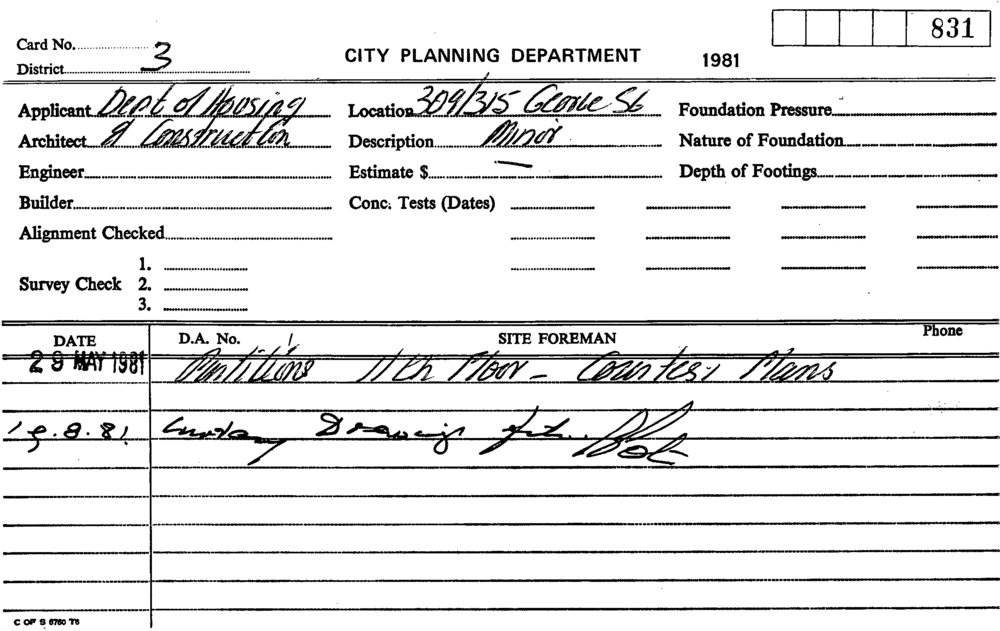 831
Card No.
District 3
CITY PLANNING DEPARTMENT 1981
Applicant Dept of Housing Location 309/315 George St Foundation Pressure
Architect & Construction Description Minor Nature of Foundation
Engineer Estimate $ — Depth of Footings
Builder Conc. Tests (Dates)
Alignment Checked
1.
Survey Check 2.
3.
DATE D.A. No. SITE FOREMAN Phone
29 MAY 1981 Partitions 11th Floor - Courtesy Plans
19.8.81. Courtesy Drawings
C OF S 6760 T6